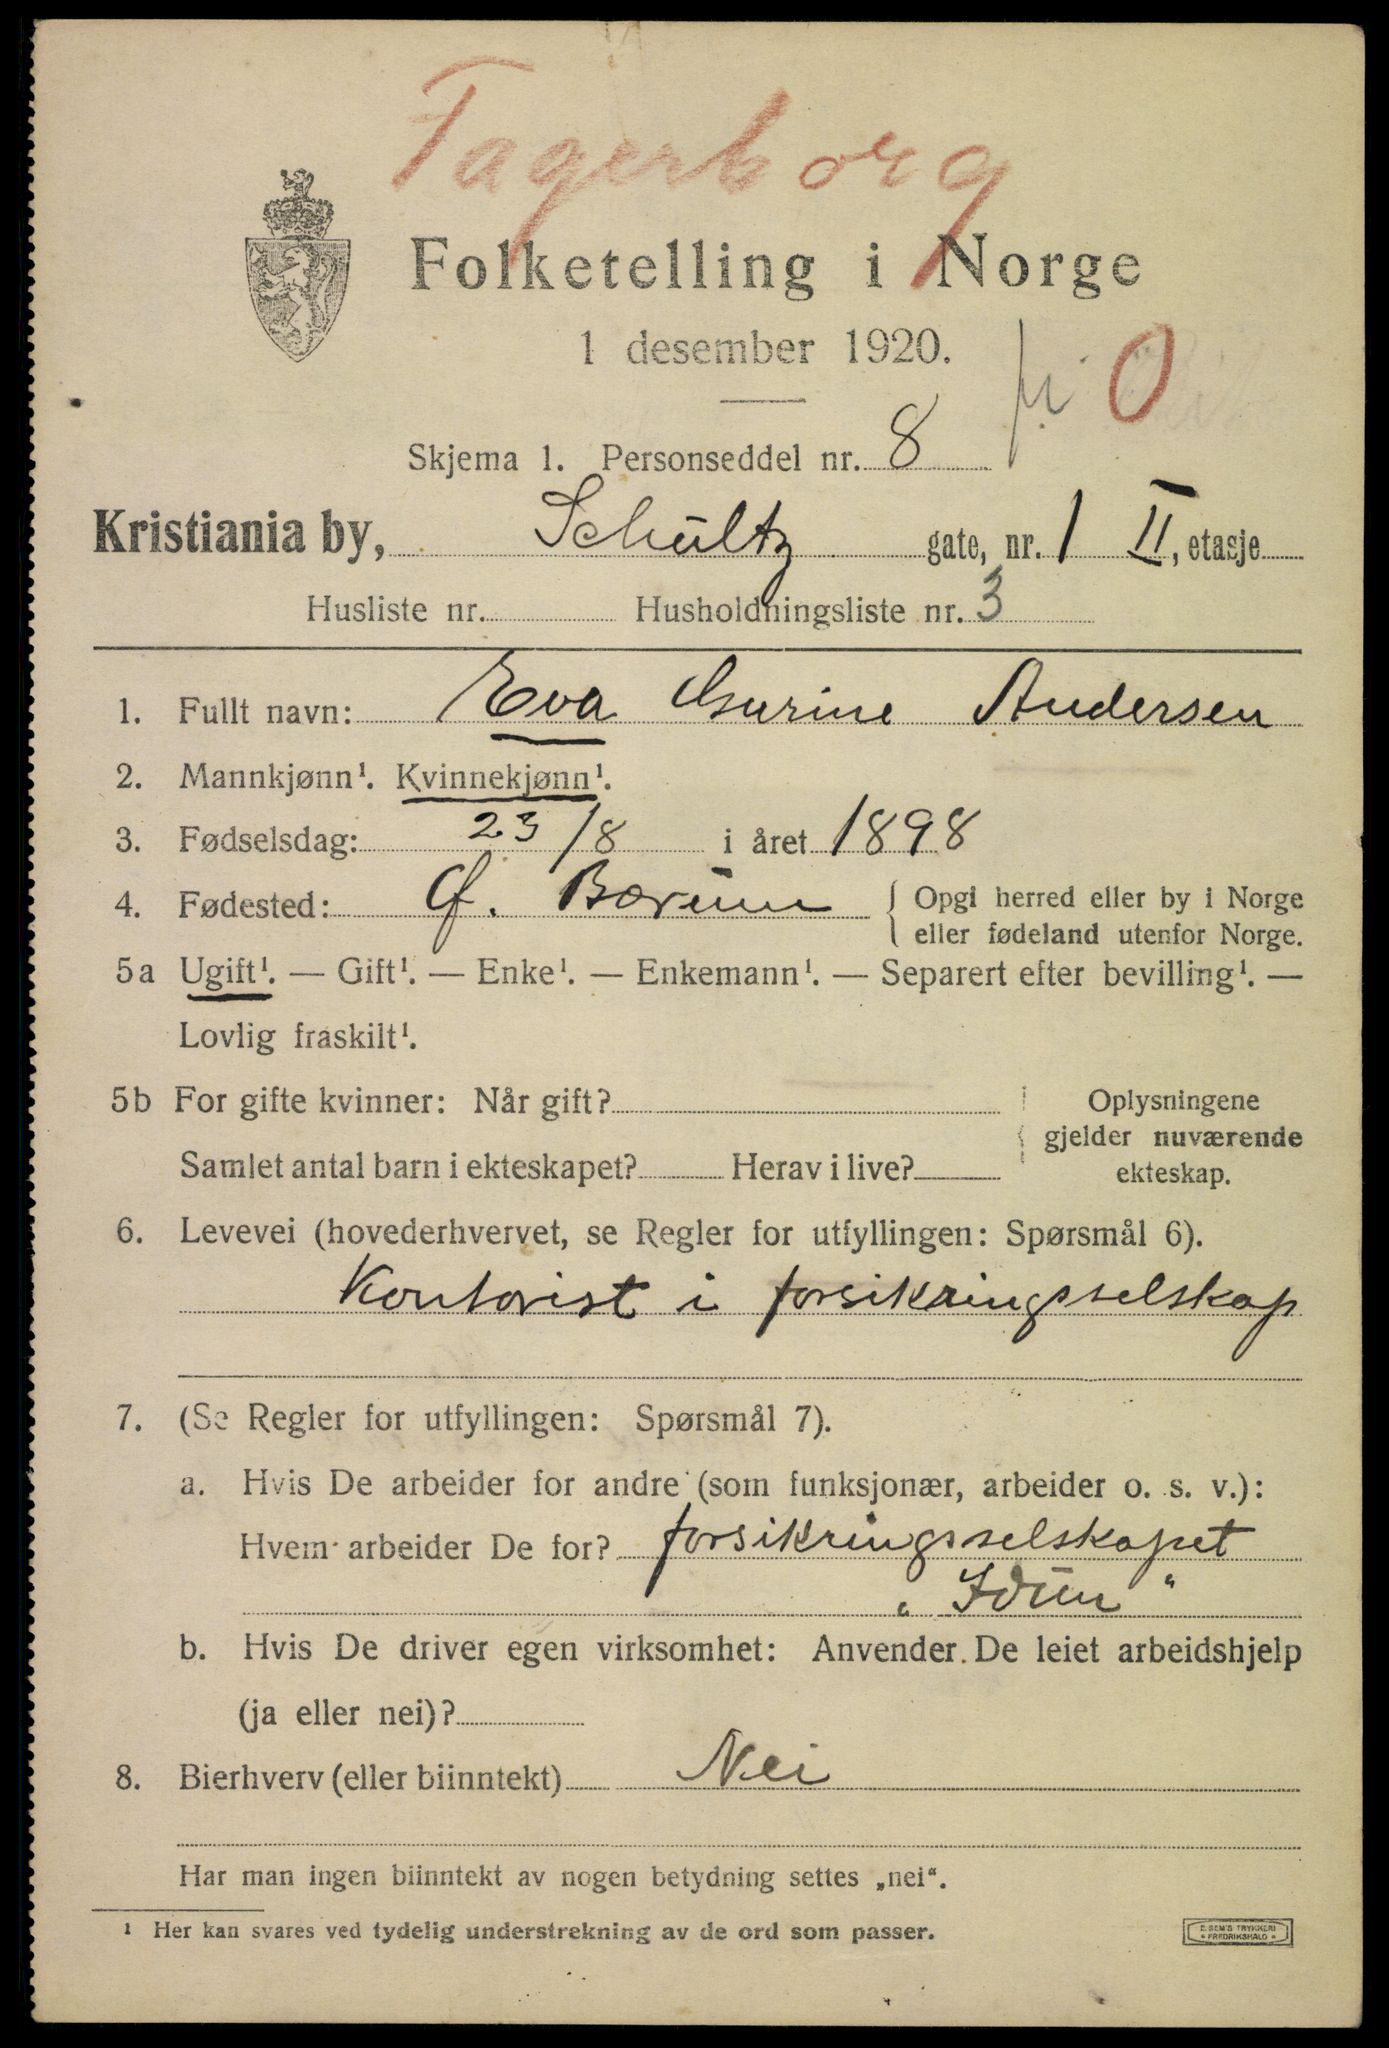 Fagerborg
Folketelling i Norge
1 desember 1920.
O
Skjema 1. Personseddel nr. 8
Kristiania by, Schultz gate, nr. 1 II, etasje
Husliste nr. Husholdningsliste nr. 3
1. Fullt navn: Eva Gurine Andersen
2. Mannkjønn¹. Kvinnekjønn¹.
3. Fødselsdag: 23/8 i året 1898
4. Fødested: Ø. Bærum { Opgi herred eller by i Norge
eller fødeland utenfor Norge.
5a Ugift¹. — Gift¹. — Enke¹. — Enkemann¹. — Separert efter bevilling¹. —
Lovlig fraskilt¹.
5b For gifte kvinner: Når gift?
Samlet antal barn i ekteskapet? Herav i live?
Oplysningene
gjelder nuværende
ekteskap.
6. Levevei (hovederhvervet, se Regler for utfyllingen: Spørsmål 6).
Kontorist i forsikringsselskap
7. (Se Regler for utfyllingen: Spørsmål 7).
a. Hvis De arbeider for andre (som funksjonær, arbeider o. s. v.):
Hvem arbeider De for? forsikringsselskapet
„Idun“
b. Hvis De driver egen virksomhet: Anvender De leiet arbeidshjelp
(ja eller nei)?
8. Bierhverv (eller biinntekt) Nei
Har man ingen biinntekt av nogen betydning settes „nei“.
¹ Her kan svares ved tydelig understrekning av de ord som passer.
E. SEM'S TRYKKERI
FREDRIKSHALD